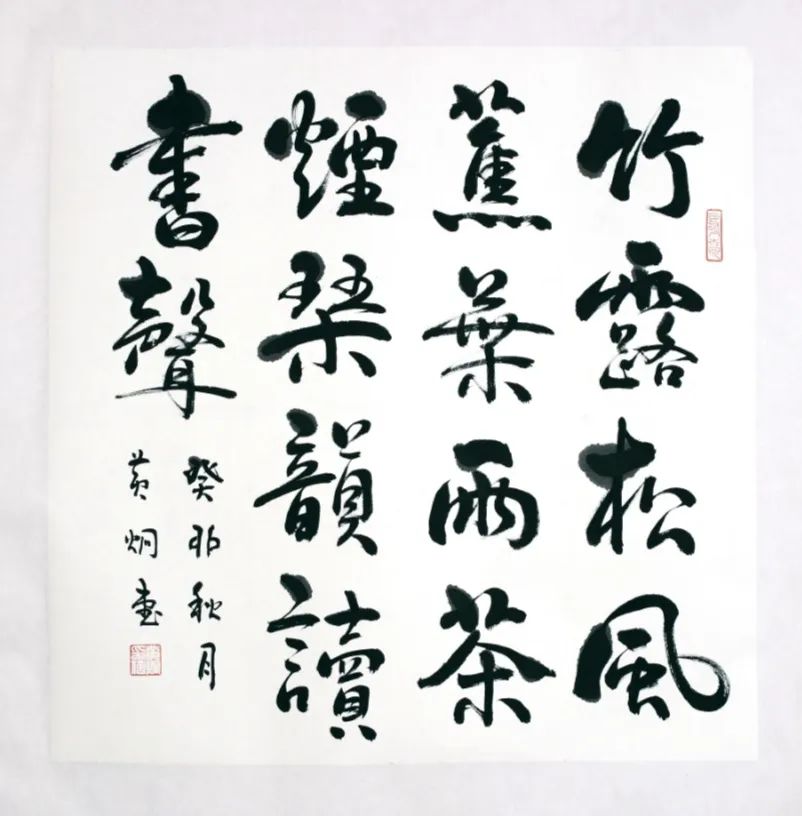 竹露松風
蕉葉雨茶
煙琴韻讀
書聲
癸卯秋月
黄炯書